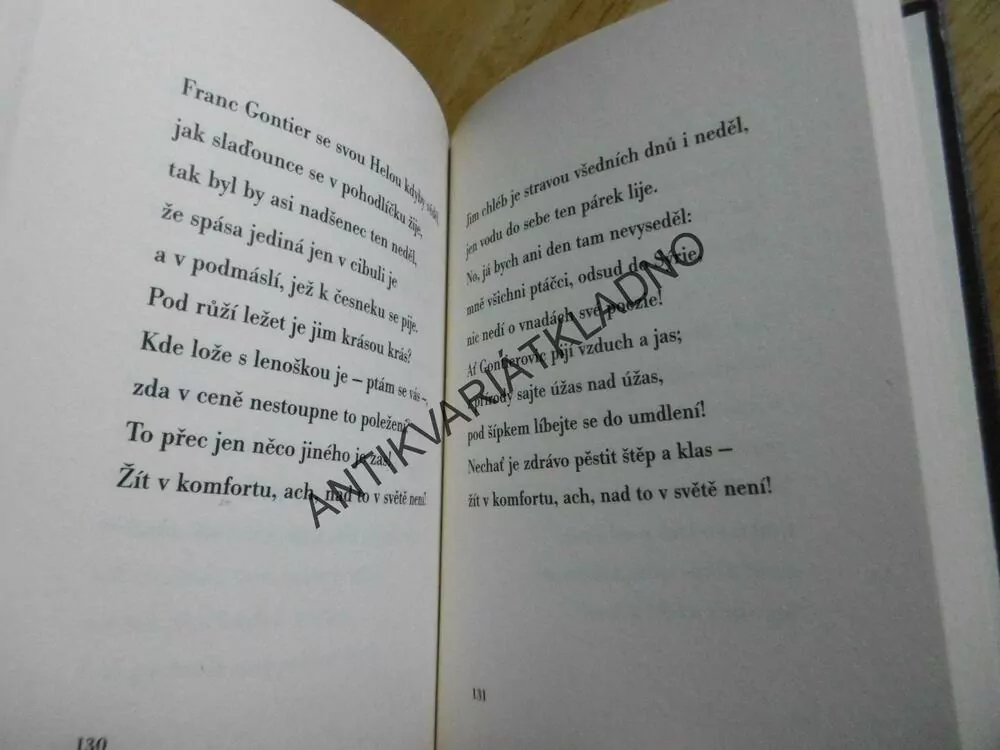 Franc Gontier se svou Helou kdyby
jak slaďounce se v pohodlíčku žije,
tak byl by asi nadšenec ten neděl,
že spása jediná jen v cibuli je
a v podmáslí, jež k česneku se pije.
Pod růží ležet je jim krásou krás?
Kde lože s lenoškou je – ptám se vás –,
zda v ceně nestoupne to poležení?
To přec jen něco jiného je zas!
Žít v komfortu, ach, nad to v světě není!
130
Jim chléb je stravou všedních dnů i neděl,
jen vodu do sebe ten párek lije.
No, já bych ani den tam nevyseděl:
mně všichni ptáčci, odsud do Sýrie,
nic nedí o vnadách své poezie!
Ať Gontierovic pijí vzduch a jas;
přírody sajte úžas nad úžas,
pod šípkem líbejte se do umdlení!
Nechať je zdrávo pěstit štěp a klas –
žít v komfortu, ach, nad to v světě není!
131
ANTIKVARIÁTKLADNO